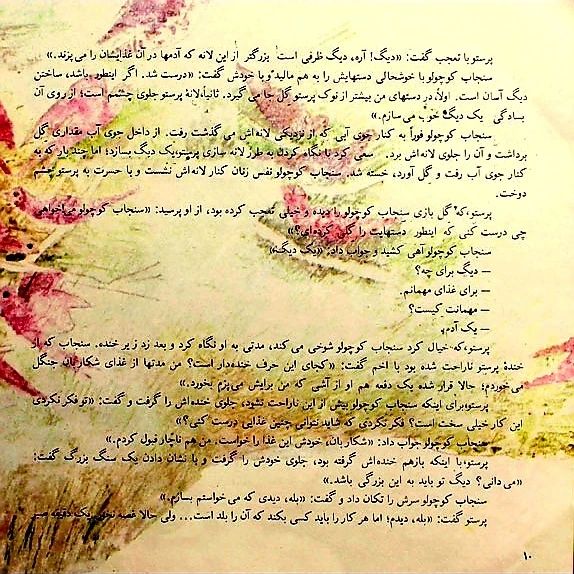 پرستو با تعجب گفت: «دیگ! آره، دیگ ظرفی است بزرگتر از این لانه که آدمها در آن غذایشان را می‌پزند.»
سنجاب کوچولو با خوشحالی دستهایش را به هم مالید و با خودش گفت: «درست شد. اگر اینطور باشد، ساختن
دیگ آسان است. اولاً، در دستهای من بیشتر از نوک پرستو گل جا می گیرد. ثانیاً، لانهٔ پرستو جلوی چشمم است؛ از روی آن
بسادگی یک دیگ خوب می سازم.»
سنجاب کوچولو فوراً به کنار جوی آبی که از نزدیکی لانه‌اش می گذشت رفت. از داخل جوی آب مقداری گل
برداشت و آن را جلوی لانه‌اش برد. سعی کرد با نگاه کردن به طرز لانه سازی پرستو، یک دیگ بسازد؛ اما چند بار که به
کنار جوی آب رفت و گل آورد، خسته شد. سنجاب کوچولو نفس زنان کنار لانه‌اش نشست و با حسرت به پرستو چشم
دوخت.
پرستو، که گل بازی سنجاب کوچولو را دیده و خیلی تعجب کرده بود، از او پرسید: «سنجاب کوچولو می‌خواهی
چی درست کنی که اینطور دستهایت را گلی کرده‌ای؟»
سنجاب کوچولو آهی کشید و جواب داد: «یک دیگ»
— دیگ برای چه؟
— برای غذای مهمانم.
— مهمانت کیست؟
— یک آدم.
پرستو، که خیال کرد سنجاب کوچولو شوخی می کند، مدتی به او نگاه کرد و بعد زد زیر خنده. سنجاب که از
خندهٔ پرستو ناراحت شده بود با اخم گفت: «کجای این حرف خنده‌دار است؟ من مدتها از غذای شکاربان جنگل
می‌خوردم؛ حالا قرار شده یک دفعه هم او از آشی که من برایش می‌پزم بخورد.»
پرستو، برای اینکه سنجاب کوچولو بیش از این ناراحت نشود، جلوی خنده‌اش را گرفت و گفت: «تو فکر نکردی
این کار خیلی سخت است؟ فکر نکردی که شاید نتوانی چنین غذایی درست کنی؟»
سنجاب کوچولو جواب داد: «شکاربان، خودش این غذا را خواست. من هم ناچار قبول کردم.»
پرستو، با اینکه بازهم خنده‌اش گرفته بود، جلوی خودش را گرفت و با نشان دادن یک سنگ بزرگ گفت:
«می دانی؟ دیگ تو باید به این بزرگی باشد.»
سنجاب کوچولو سرش را تکان داد و گفت: «بله، دیدی که می خواستم بسازم.»
پرستو گفت: «بله، دیدم؛ اما هر کار را باید کسی بکند که آن را بلد است... ولی حالا غصه نخور. یک دقیقه صبر
۱۰